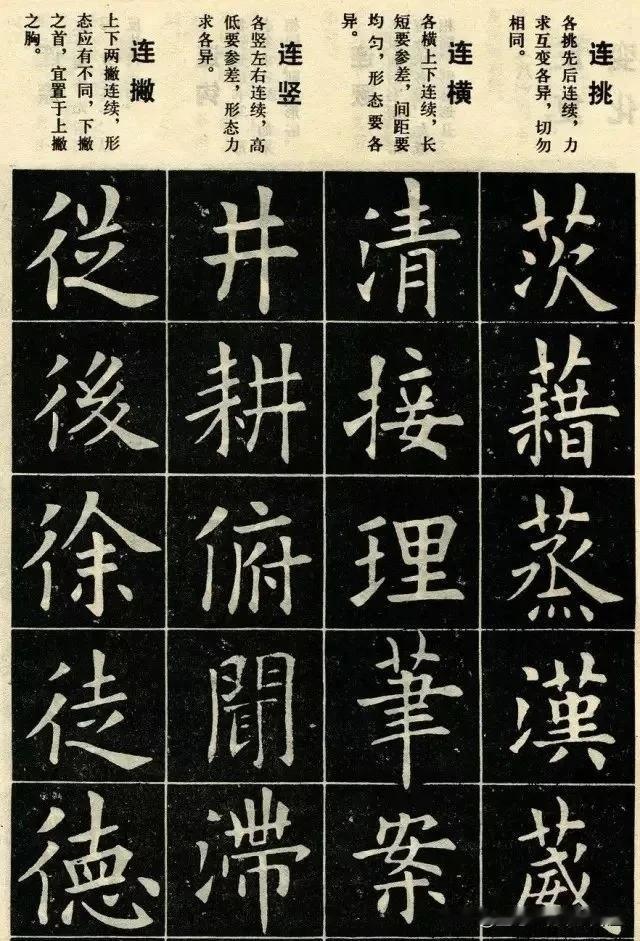 连挑
各挑先后连续，力
求互变各异，切勿
相同。
茨
藉
蒸
漢
葳
连横
各横上下连续，长
短要参差，间距要
均匀，形态要各
异。
清
接
理
筆
案
连竖
各竖左右连续，高
低要参差，形态力
求各异。
井
耕
俯
聞
滞
连撇
上下两撇连续，形
态应有不同，下撇
之首，宜置于上撇
之胸。
從
後
徐
徒
德